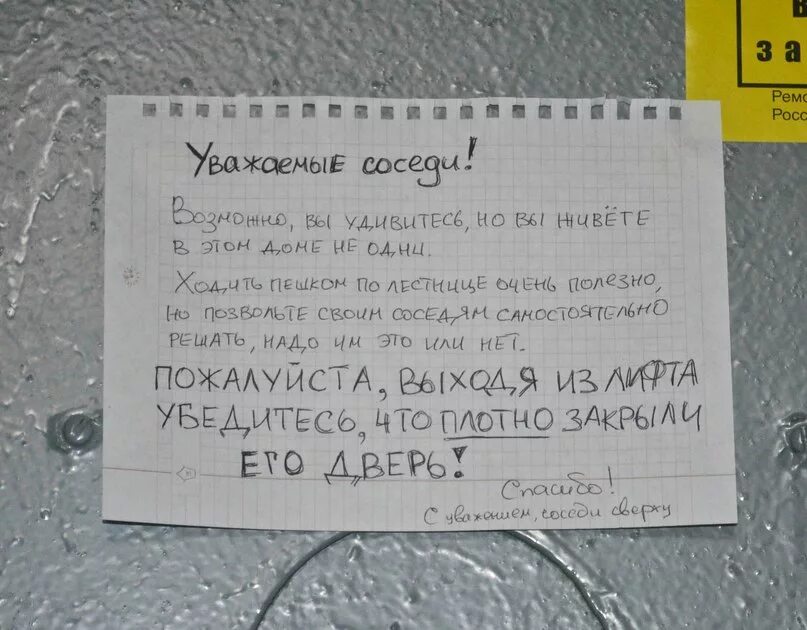 В
ЗА
Ремо
Росс
Уважаемые соседи!
Возможно, вы удивитесь, но вы живёте
в этом доме не одни.
Ходить пешком по лестнице очень полезно,
но позвольте своим соседям самостоятельно
решать, надо им это или нет.
ПОЖАЛУЙСТА, ВЫХОДЯ ИЗ ЛИФТА
УБЕДИТЕСЬ, ЧТО ПЛОТНО ЗАКРЫЛИ
ЕГО ДВЕРЬ!
Спасибо!
С уважением, соседи сверху